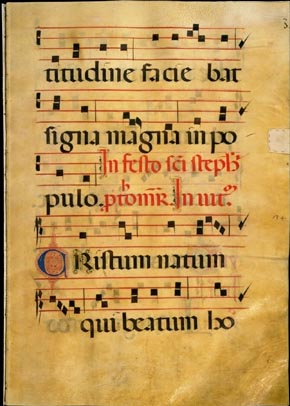 titudine facie bat
signa magna in po
In festo sci steph
pulo. In uit
CRistum natum
qui beatum ho